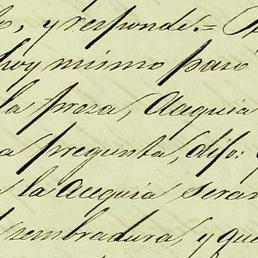 y responde:=
hoy mismo pasó
la proza, Acequia
a pregunta, dijo:
la Acequia seran
sembradura, y que